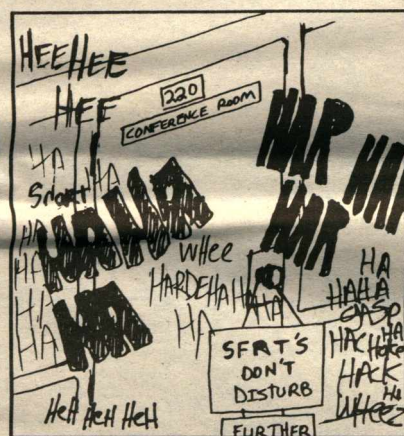 HEE HEE
HEE
220
CONFERENCE ROOM
HAR
HAR
HAR
HA
HA
Snort
HAHA
HA
HA
HA
HA
HA
WHee
HARDEHAHAHA
HA
HA
HAHA
GASP
HACK HA
HACK
WHEEZ
SFRT'S
DON'T
DISTURB
FURTHER
HeH HeH HeH